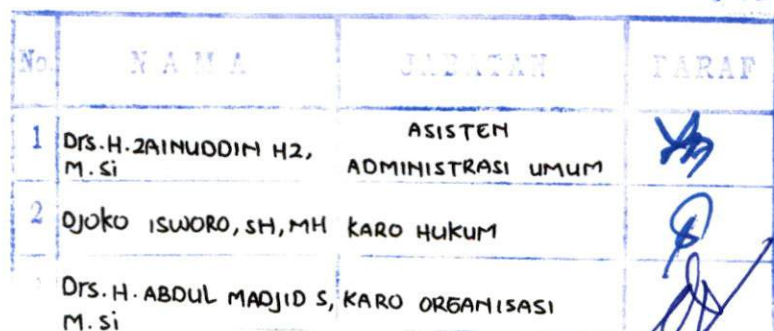 No. NAMA JABATAN PARAF
1 Drs. H. ZAINUDDIN HZ, M. Si ASISTEN ADMINISTRASI UMUM
2 DJOKO ISWORO, SH, MH KARO HUKUM
Drs. H. ABDUL MADJID S, M. Si KARO ORGANISASI